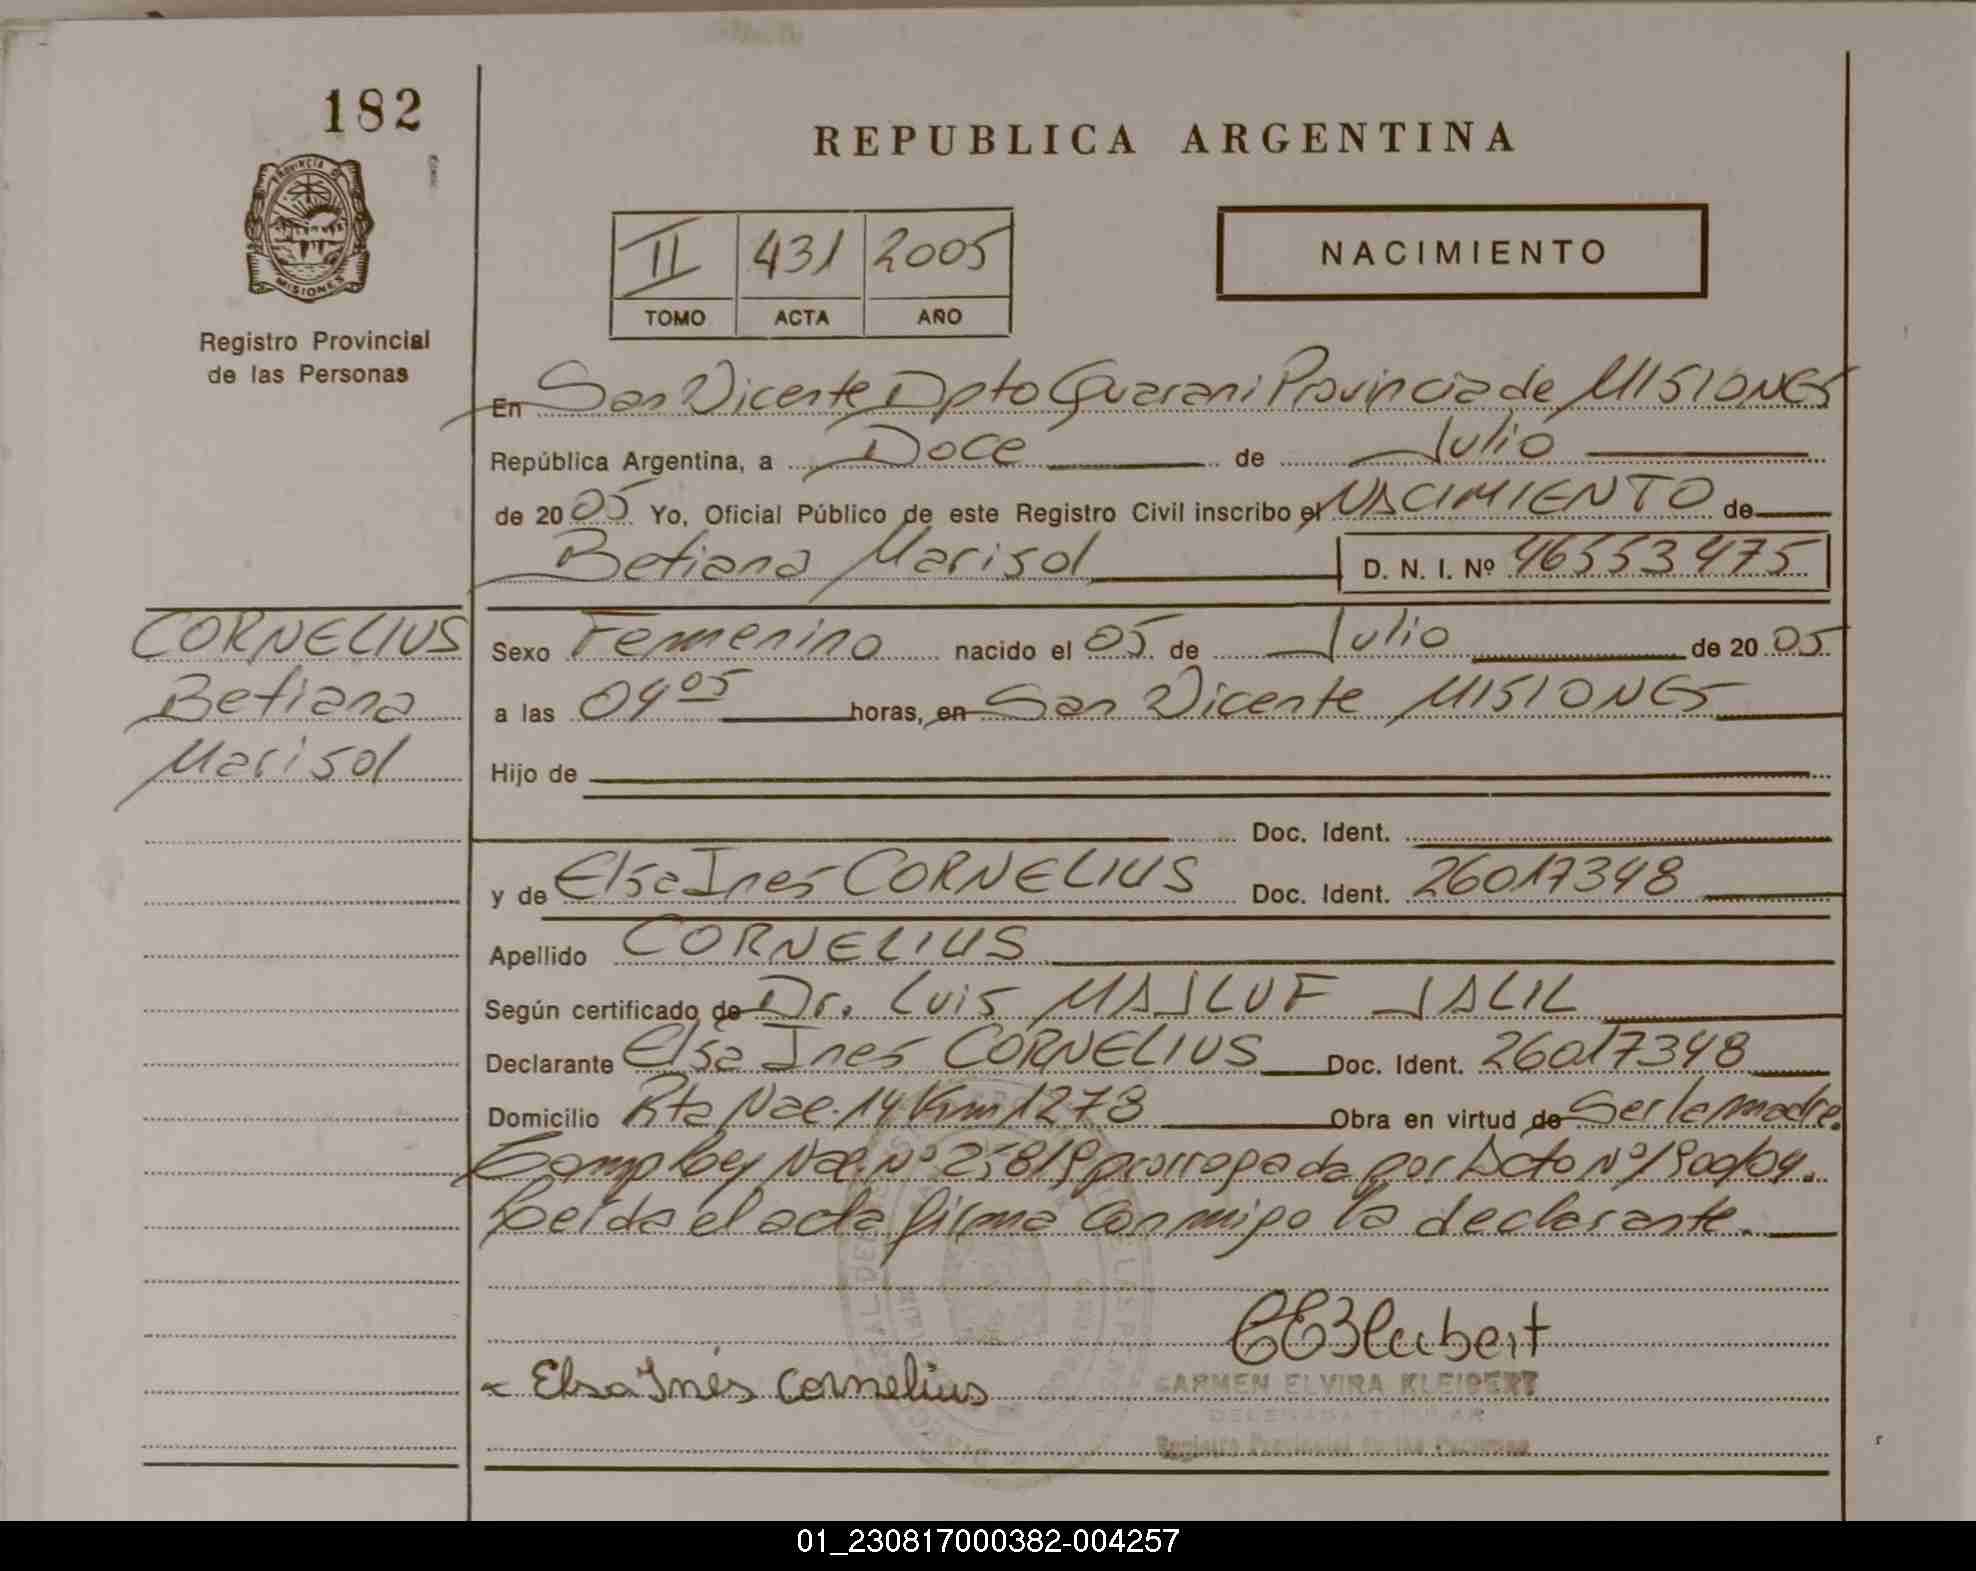 182
PROVINCIA DE
MISIONES
Registro Provincial
de las Personas
REPUBLICA ARGENTINA
II 431 2005
TOMO ACTA AÑO
NACIMIENTO
En San Vicente Dpto Guarani Provincia de MISIONES
República Argentina, a Doce de Julio
de 2005 Yo, Oficial Público de este Registro Civil inscribo el NACIMIENTO de
Betiana Marisol D. N. I. Nº 46553475
CORNELIUS
Betiana
Marisol
Sexo Femenino nacido el 05 de Julio de 2005
a las 04 05 horas, en San Vicente MISIONES
Hijo de
Doc. Ident.
y de Elsa Ines CORNELIUS Doc. Ident. 26017348
Apellido CORNELIUS
Según certificado de Dr. Luis MAJLUF JALIL
Declarante Elsa Ines CORNELIUS Doc. Ident. 26017348
Domicilio Rta Nac. 14 Km 1278 Obra en virtud de Ser la madre.
Comp Ley Nac. Nº 25819 prorrogada por Dcto Nº 1900/04.
Leida el acta firma conmigo la declarante.
Elsa Inés Cornelius
CARMEN ELVIRA KLEIBERT
DELEGADA TITULAR
Registro Provincial de las Personas
01_230817000382-004257